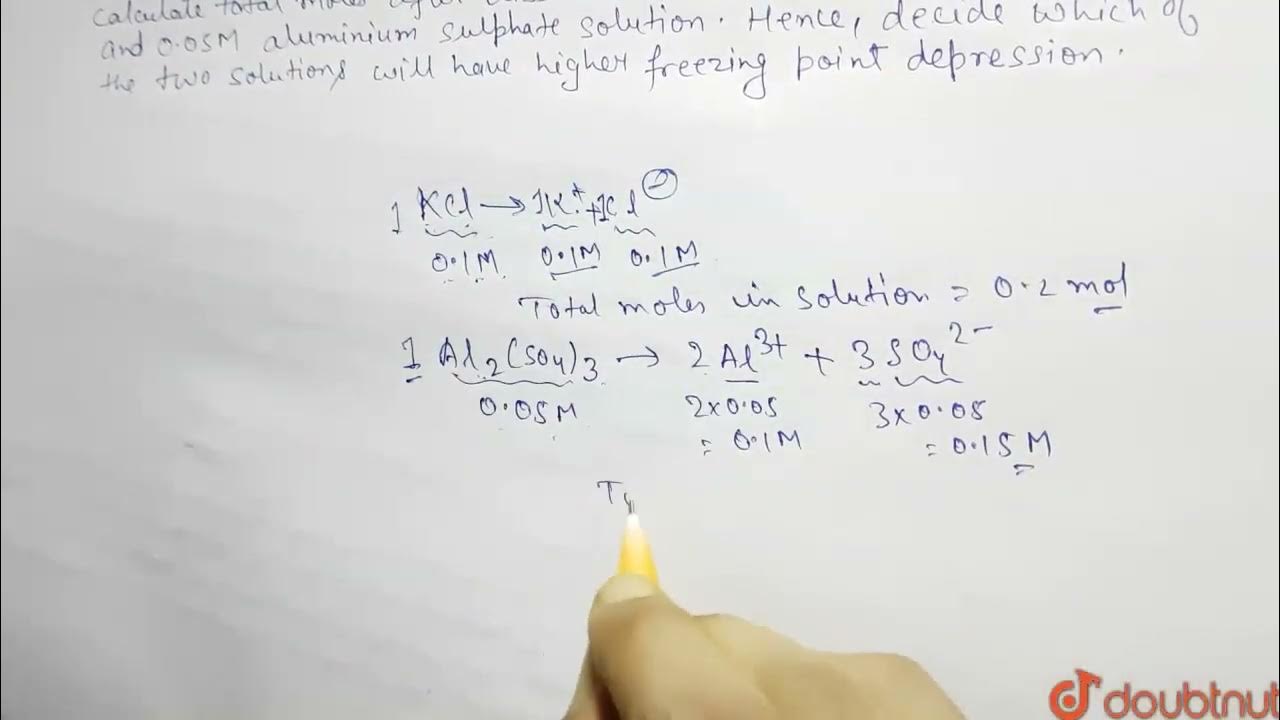 calculate total moles after
and 0.05M aluminium sulphate solution. Hence, decide which of
the two solutions will have higher freezing point depression.
1 KCl → 1K⁺ + 1Cl⊖
0.1M 0.1M 0.1M
Total moles in solution = 0.2 mol
1 Al₂(SO₄)₃ → 2Al³⁺ + 3SO₄²⁻
0.05M 2×0.05 3×0.05
= 0.1M = 0.15M
doubtnut